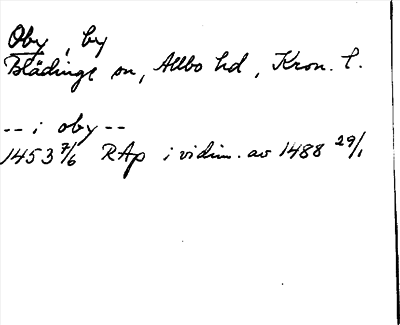 Oby, by
Blädinge sn, Allbo hd, Kron. l.
-- i oby --
1453 7/6 RAp i vidim. av 1488 29/1